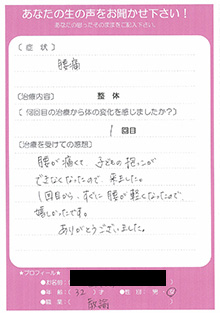 あなたの生の声をお聞かせ下さい！
あなたの思ったその字をご記入下さい。
［ 症 状 ］
腰痛
［治療内容］ 整 体
［ 何回目の治療から体の変化を感じましたか？］
1 回目
［治療を受けての感想］
腰が痛くて、子どもの抱っこが
できなくなったので、来ました。
1回目から、すぐに腰が軽くなったので、
嬉しかったです。
ありがとうございました。
★プロフィール★
●お名前：
●年 齢（ 32 ）才 ●性 別：男・女
●職 業：